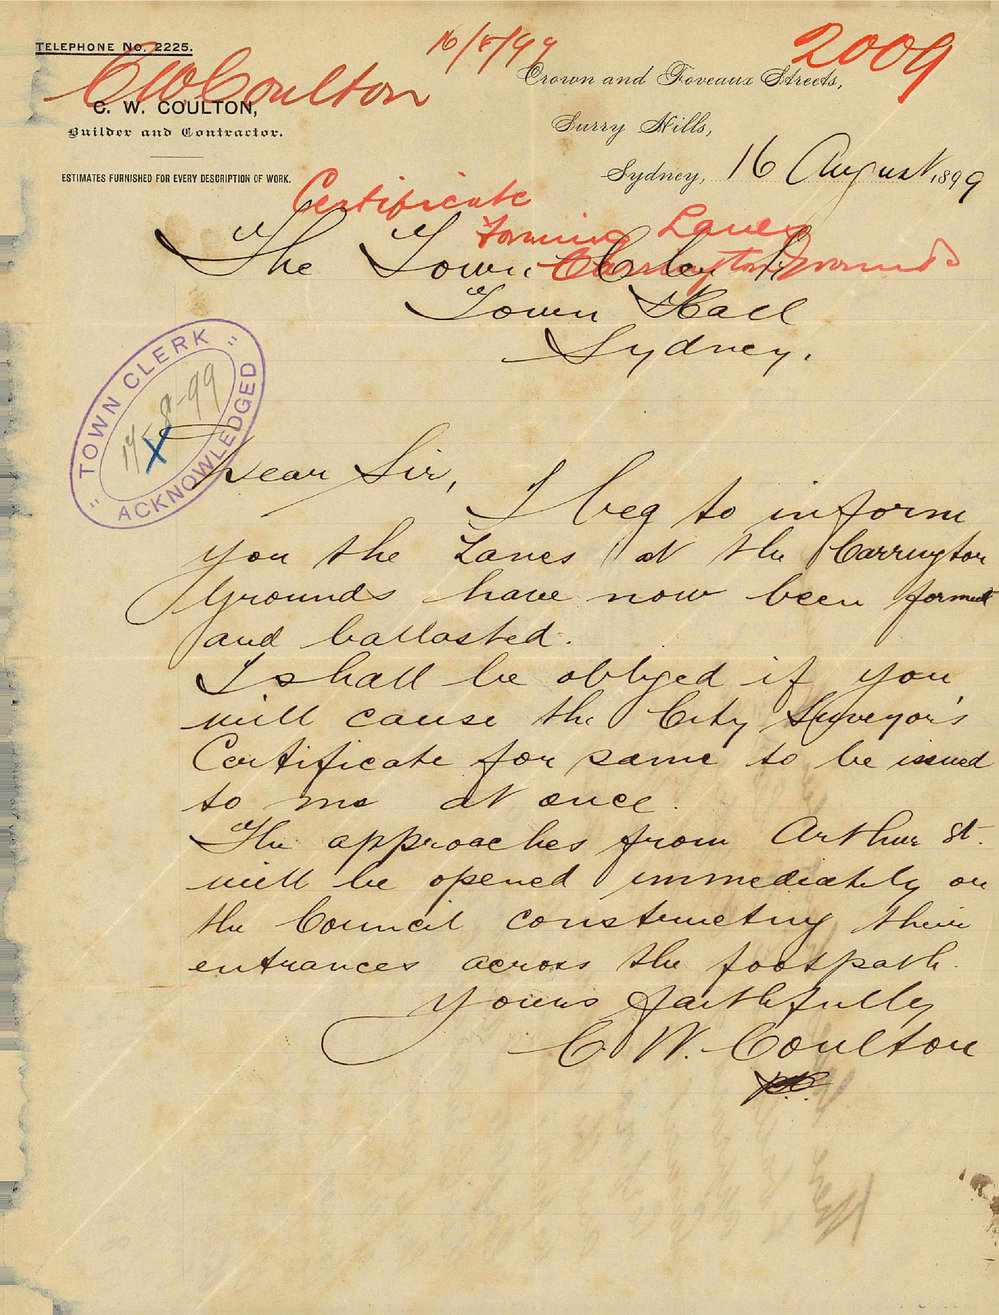 TELEPHONE No. 2225.
16/8/99
2009
C W Coulton
Crown and Foveaux Streets,
C. W. COULTON,
Builder and Contractor.
Surry Hills,
ESTIMATES FURNISHED FOR EVERY DESCRIPTION OF WORK.
Sydney, 16 August 1899
Certificate
Forming Lanes
Carrington Grounds
The Town Clerk
Town Hall
Sydney.
TOWN CLERK
17-8-99
ACKNOWLEDGED
Dear Sir,
I beg to inform
you the Lanes at the Carrington
Grounds have now been formed
and ballasted.
I shall be obliged if you
will cause the City Surveyor's
Certificate for same to be issued
to me at once.
The approaches from Arthur St.
will be opened immediately on
the Council constructing their
entrances across the footpath.
Yours faithfully
C. W. Coulton